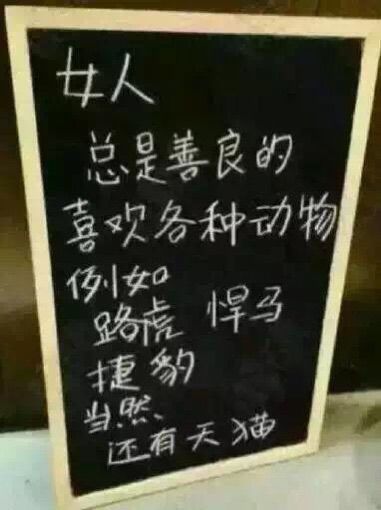 女人
总是善良的
喜欢各种动物
例如
路虎 悍马
捷豹
当然、
还有天猫